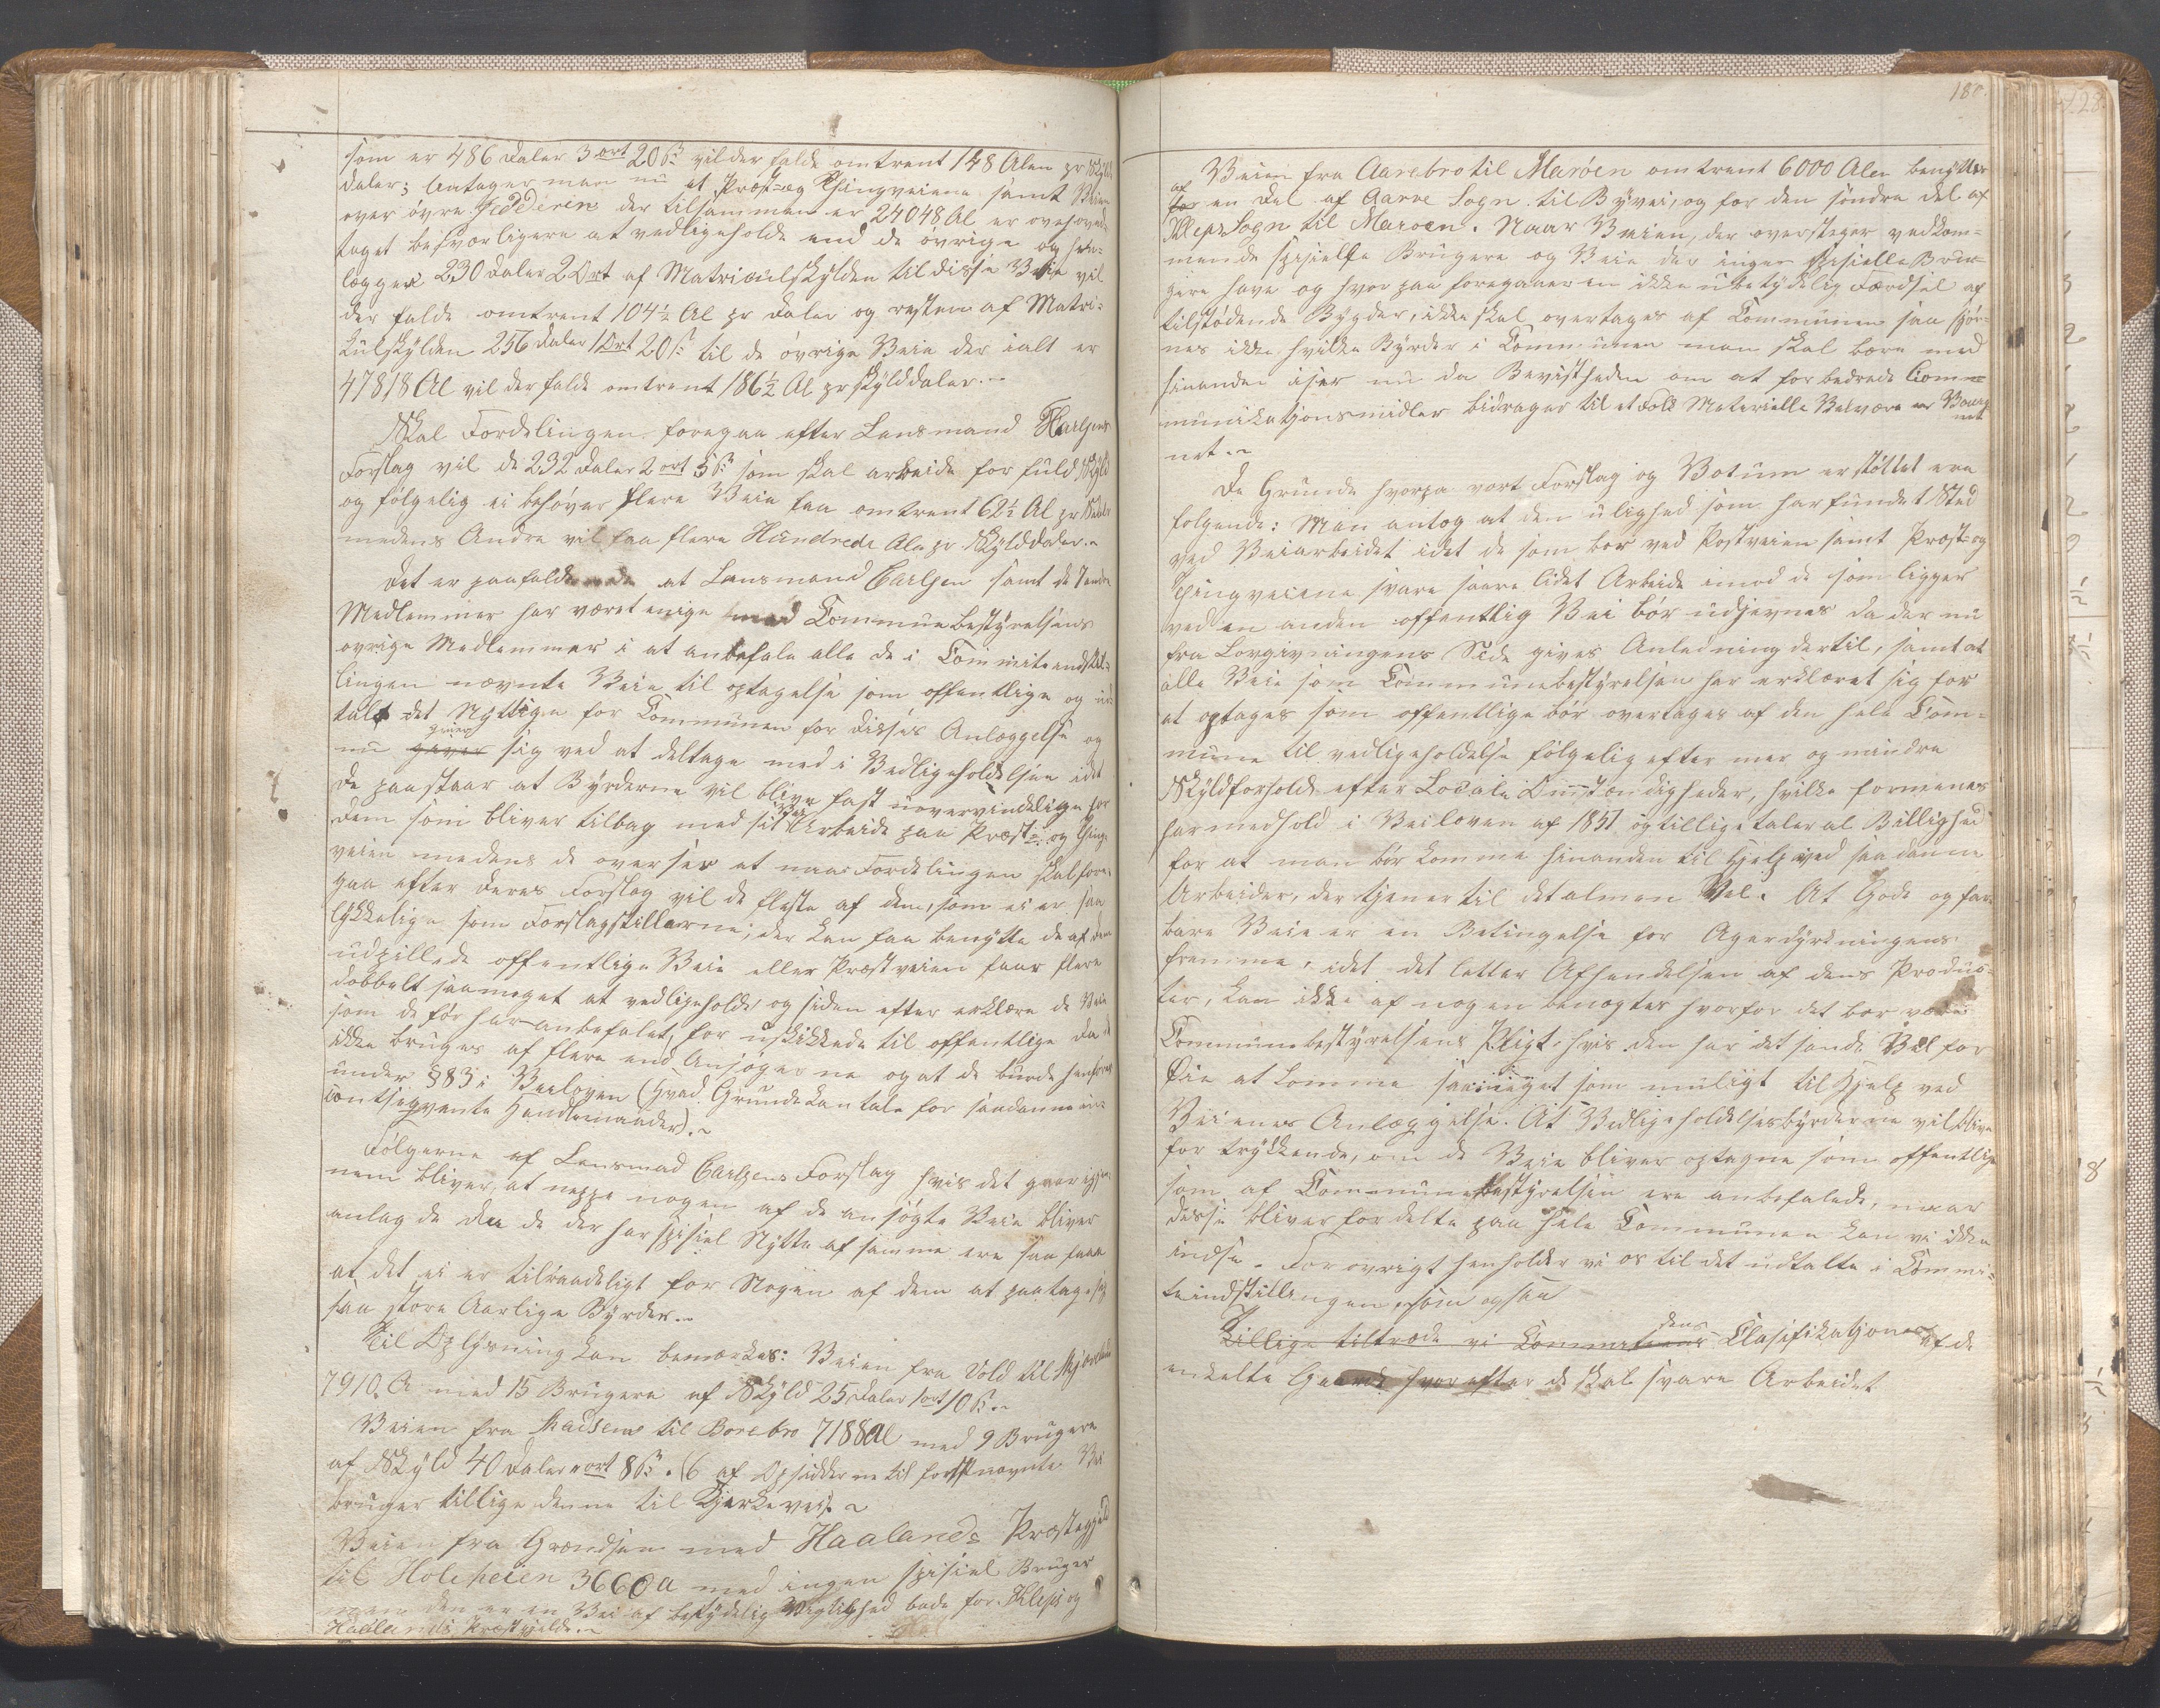 som er 486 Daler 3 ort 20 ß vil der falde omtrent 148 Alen pr Skyld
daler; Antager man nu at Præst- og Thingveiene samt Veien
over øvre Jedderen der tilsammen er 24048 Al er overhoved
taget besværligere at vedligeholde end de øvrige og hen-
lægger 230 Daler 2 Ort af Matriculskylden til disse Veie vil
der falde omtrent 104½ Al pr Daler og resten af Matri-
kulskylden 256 Daler 1 Ort 20 ß til de øvrige Veie der ialt er
47818 Al vil der falde omtrent 186½ Al pr Skylddaler.-
Skal Fordelingen foregaa efter Lensmand Carlsens
Forslag vil de 232 Daler 2 ort 5 ß som skal arbeide for fuld Skyld
og følgelig ei behøver flere Veie faa omtrent 62½ Al pr
medens Andre vil faa flere Hundrede Alen pr Skylddaler.-
Det er paafaldende at Lensmand Carlsen samt de
Medlemmer har været enige med Communebestyrelsens
øvrige Medlemmer i at anbefale alle de i Committeindstil-
lingen nævnte Veie til optagelse som offentlige og ud-
talt det Nyttige for Communen for disses Anlæggelse og
nu sig ved at deltage med i Vedligeholdelsen idet
de paastaar at Byrderne vil blive fast uovervindelige for
Dem som bliver tilbag med sit Vei Arbeide paa Præst- og Thing-
veien medens de overser at naar Fordelingen skal fore-
gaa efter deres Forslag vil de fleste af dem, som ei er saa
lykkelige som Forslagstillerne, der kan faa benytte de af dem
udpillede offentlige Veie eller Præstveien faar flere
dobbelt saameget at vedligeholde, og siden efter erklære de Veie
som de før har anbefalet, for uskikkede til offentlige da de
ikke bruges af flere end Ansøgerne og at de burde henføres
under § 83 i Veiloven (hvad Grunde kan tale for saadanne in-
contseqvente Handlemaader).-
Følgerne af Lensmad Carlsens Forslag hvis det gaar igjen-
nem bliver, at neppe nogen af de ansøgte Veie bliver
anlagde da de der har spisiel Nytte af samme ere saa faae
at det ei er tilraadeligt for Nogen af dem at paatage sig
saa store Aarlige Byrder.-
Til Oplysning kan bemærkes: Veien fra Vold til
7910 A med 15 Brugere af Skyld 25 Daler 1 ort 10 ß.-
Veien fra til Borebro 7188 Al med 9 Brugere
af Skyld 40 Daler " ort 8 ß. (6 af Opsidderne til førstnævnte Vei
bruger tillige denne til Kjerkevei).-
Veien fra Grændsen med Haalands Præstegjeld
til Holeheien 3660 A med ingen spisiel Bruger
men den er en Vei af betydelig Vigtighed bade for Kleps og
Haalands Præstgjeld.-
180.
Veien fra Aarebro til Marøen omtrent 6000 Alen benyttes
af
for en Del af Aarre Sogn til Byvei, og for den søndre del af
Kleps Sogn til Marøen. Naar Veien, der overstiger vedkom-
mende spisielle Brugere og Veie der ingen spisielle Bru-
gere have og hvor paa foregaaer en ikke ubetydelig Færdsel af
tilstødende Bygder, ikke skal overtages af Communen saa skjøn-
nes ikke hvilke Byrder i Communen man skal bære med
hinanden især nu da Bevistheden om at forbedrede Comm-
munikatjonsmidler bidrager til et Folks Materielle Velvære er
net.-
De Grunde hvorpa vort Forslag og Votum er støttet ere
følgende: Man antog at den ulighed som har fundet Sted
ved Veiarbeidet idet de som bor ved Postveien samt Præst- og
Thingveiene svare saare lidet Arbeide imod de som ligger
ved en anden offentlig Vei bør udjevnes da der nu
fra Lovgivningens Side gives Anledning dertil, samt at
alle Veie som Communebestyrelsen har erklæret sig for
at optages som offentlige bør overtages af den hele Com-
mune til vedligeholdelse følgelig efter mer og mindre
Skyldforhold efter Locale Omstændigheder, hvilke formenes
har medhold i Veiloven af 1851 og tillige taler al Billighed
for at man bør komme hinanden til Hjelp ved saadanne
Arbeider, der tjener til det almene Vel. At Gode og far-
bare Veie er en Betingelse for Agerdyrkningens
fremme, idet det letter Afhendelsen af dens Produc-
ter, kan ikke af nogen benægtes hvorfor det bør være
Communebestyrelsens Pligt, hvis den har det sande Vel for
Øie at komme saa meget som muligt til Hjelp ved
Veienes Anlæggelse. At Vedligeholdelsesbyrderne vil blive
for trykkende, om de Veie bliver optagne som offentlige
som af Communebestyrelsen ere anbefalede, naar
disse bliver fordelte paa hele Communen kan vi ikke
indse. For øvrigt henholder vi os til det udtalte i Commi-
teindstillingen, som ogsaa
dens
Tillige tiltræde vi Commiteens Clasifikatjon af de
enkelte Gaarde hvorefter de skal svare Arbeidet